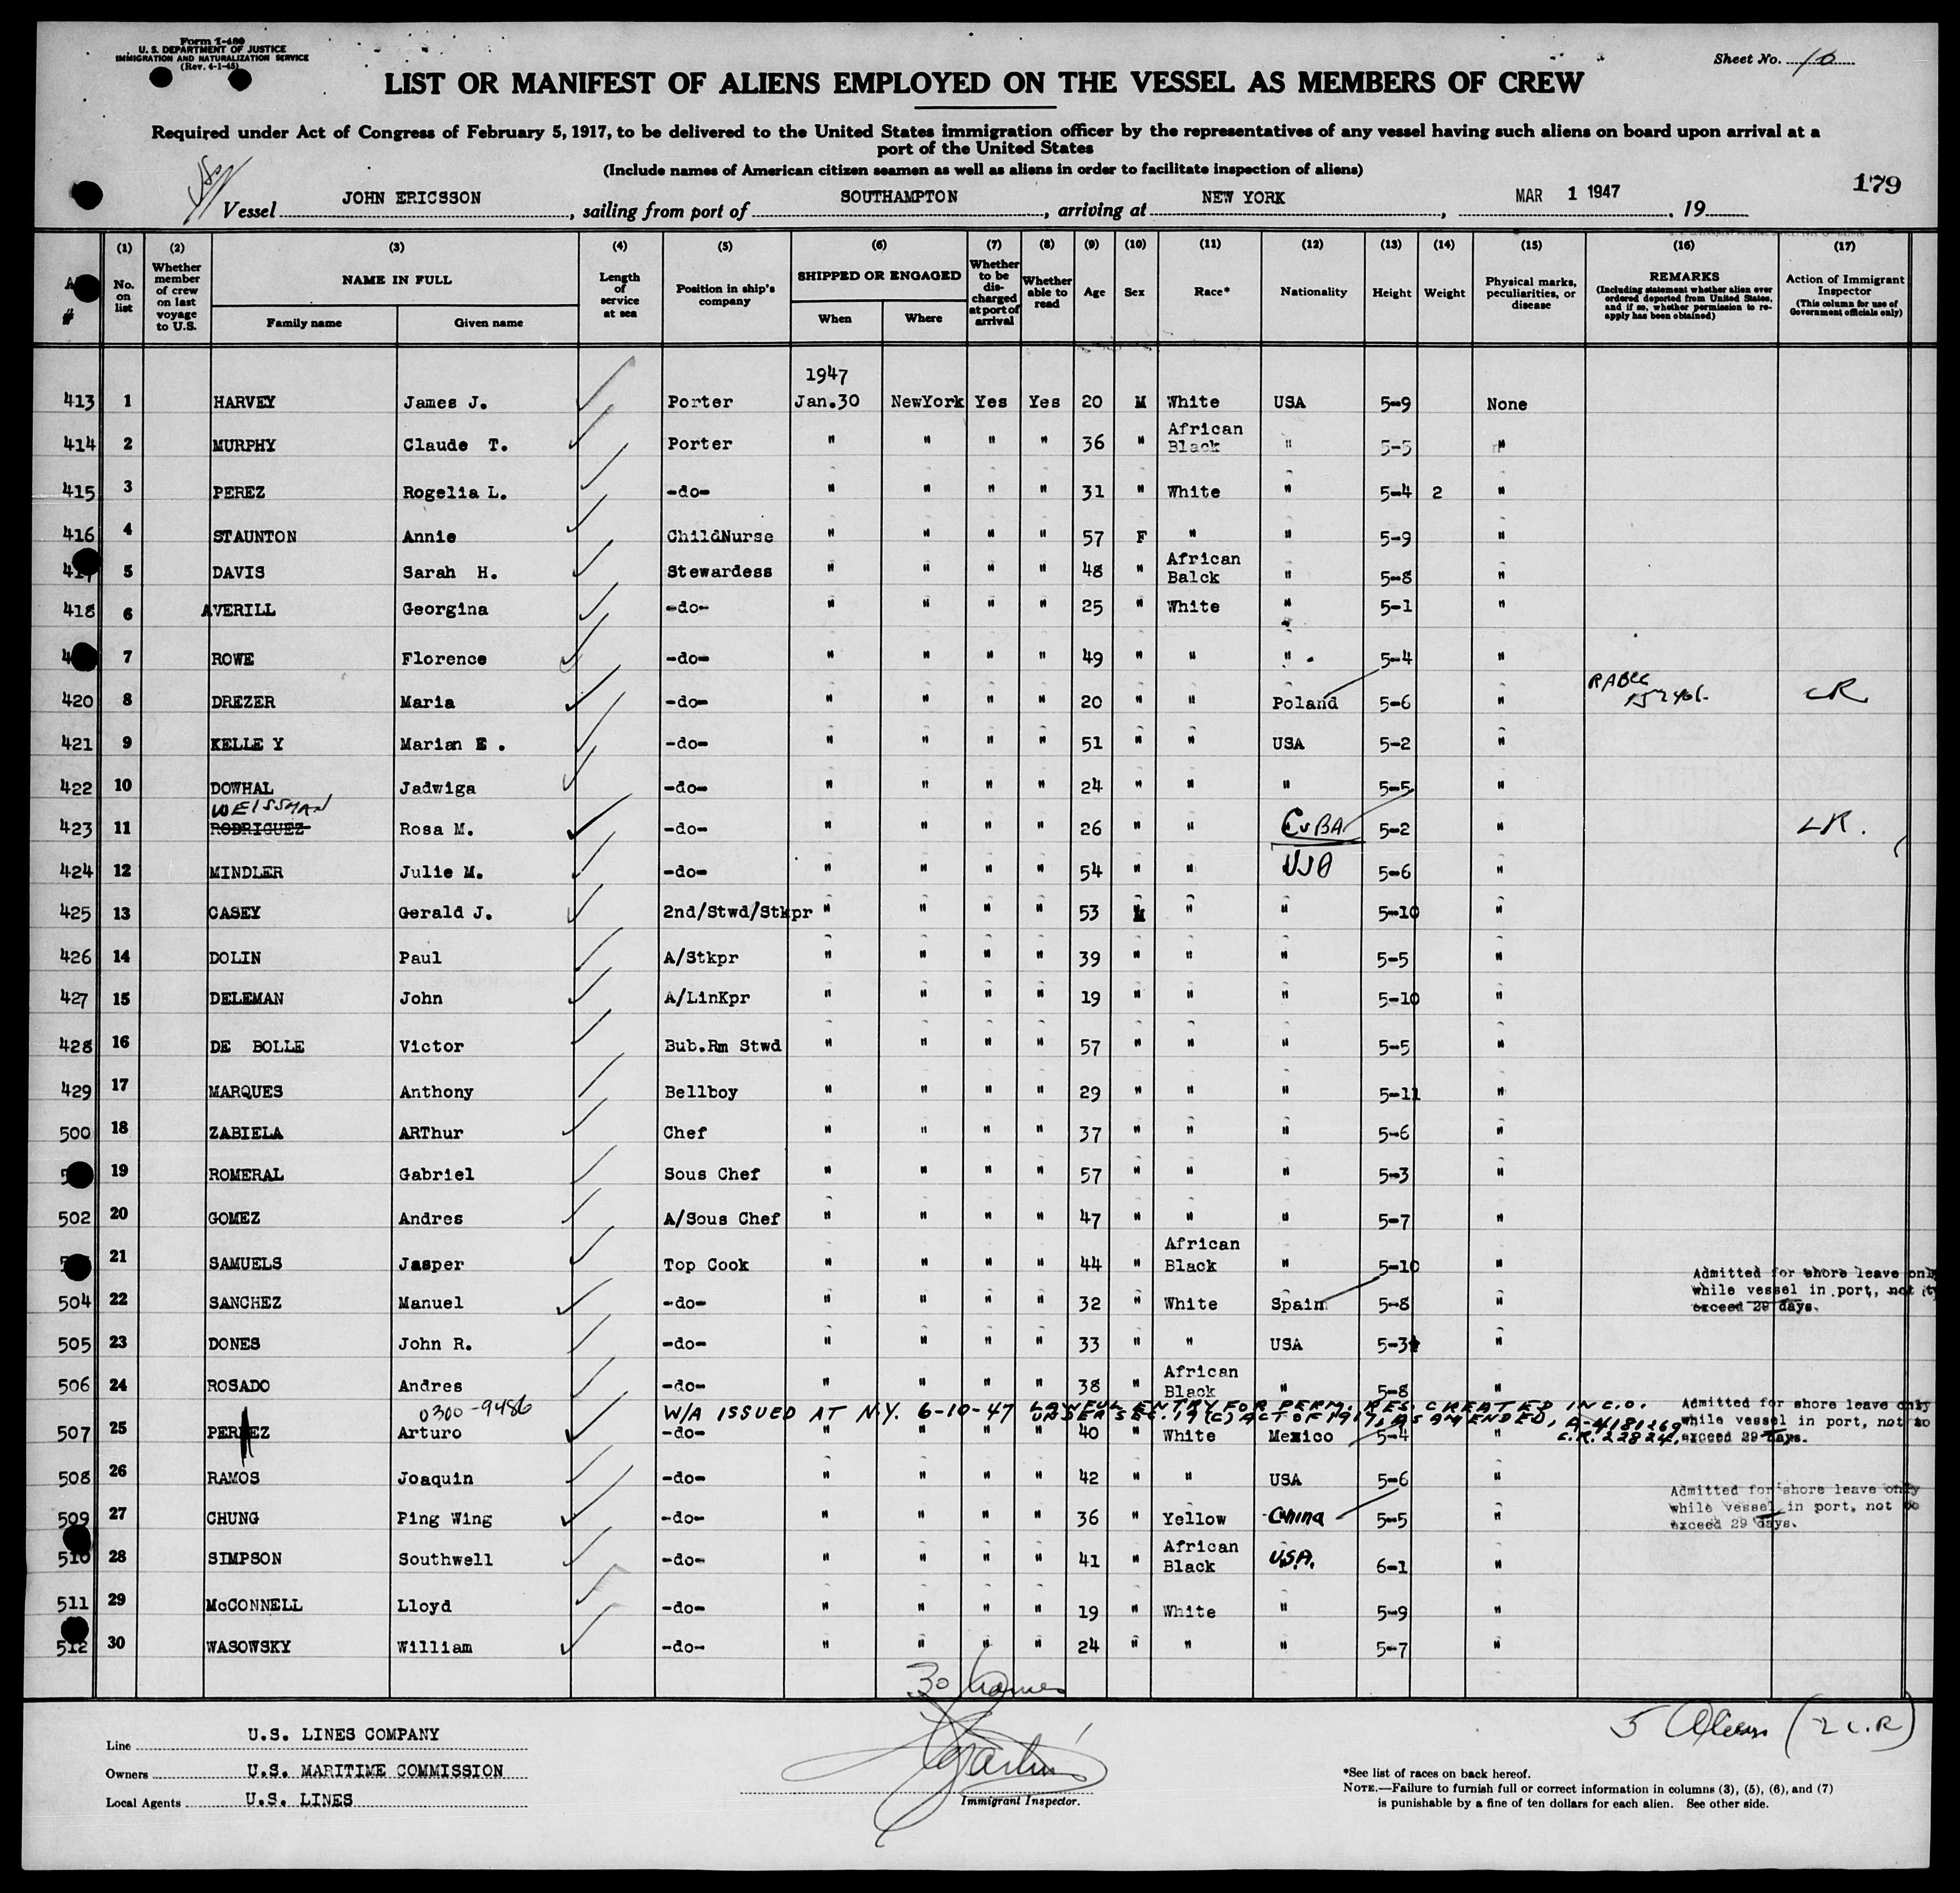 Form I-480
U. S. DEPARTMENT OF JUSTICE
IMMIGRATION AND NATURALIZATION SERVICE
(Rev. 4-1-45)
Sheet No. 10
LIST OR MANIFEST OF ALIENS EMPLOYED ON THE VESSEL AS MEMBERS OF CREW
Required under Act of Congress of February 5, 1917, to be delivered to the United States immigration officer by the representatives of any vessel having such aliens on board upon arrival at a
port of the United States
(Include names of American citizen seamen as well as aliens in order to facilitate inspection of aliens)
179
Vessel JOHN ERICSSON, sailing from port of SOUTHAMPTON, arriving at NEW YORK, MAR 1 1947, 19
(1) No. on list
(2) Whether member of crew on last voyage to U.S.
(3) NAME IN FULL Family name Given name
(4) Length of service at sea
(5) Position in ship's company
(6) SHIPPED OR ENGAGED When Where
(7) Whether to be discharged at port of arrival
(8) Whether able to read
(9) Age
(10) Sex
(11) Race*
(12) Nationality
(13) Height
(14) Weight
(15) Physical marks, peculiarities, or disease
(16) REMARKS (Including statement whether alien ever ordered deported from United States, and if so, whether permission to re-apply has been obtained)
(17) Action of Immigrant Inspector (This column for use of Government officials only)
#
1947
413 1 HARVEY James J. Porter Jan.30 NewYork Yes Yes 20 M White USA 5-9 None
414 2 MURPHY Claude T. Porter " " " " 36 " African Black " 5-5 "
415 3 PEREZ Rogelia L. -do- " " " " 31 " White " 5-4 2 "
416 4 STAUNTON Annie ChildNurse " " " " 57 F " " 5-9 "
5 DAVIS Sarah H. Stewardess " " " " 48 " African Balck " 5-8 "
418 6 AVERILL Georgina -do- " " " " 25 " White " 5-1 "
7 ROWE Florence -do- " " " " 49 " " " 5-4 "
420 8 DREZER Maria -do- " " " " 20 " " Poland 5-6 "
421 9 KELLE Y Marian E . -do- " " " " 51 " " USA 5-2 "
422 10 DOWHAL Jadwiga -do- " " " " 24 " " " 5-5 "
WEISSMAN
423 11 RODRIGUEZ Rosa M. -do- " " " " 26 " " CuBA 5-2 "
424 12 MINDLER Julie M. -do- " " " " 54 " " USA 5-6 "
425 13 CASEY Gerald J. 2nd/Stwd/Stkpr " " " " 53 M " " 5-10 "
426 14 DOLIN Paul A/Stkpr " " " " 39 " " " 5-5 "
427 15 DELEMAN John A/LinKpr " " " " 19 " " " 5-10 "
428 16 DE BOLLE Victor Bub.Rm Stwd " " " " 57 " " " 5-5 "
429 17 MARQUES Anthony Bellboy " " " " 29 " " " 5-11 "
500 18 ZABIELA ARThur Chef " " " " 37 " " " 5-6 "
19 ROMERAL Gabriel Sous Chef " " " " 57 " " " 5-3 "
502 20 GOMEZ Andres A/Sous Chef " " " " 47 " " " 5-7 "
21 SAMUELS Jasper Top Cook " " " " 44 " African Black " 5-10 "
504 22 SANCHEZ Manuel -do- " " " " 32 " White Spain 5-8 " Admitted for shore leave only while vessel in port, not to exceed 29 days.
505 23 DONES John R. -do- " " " " 33 " " USA 5-3 "
506 24 ROSADO Andres -do- " " " " 38 " African Black " 5-8 "
0300-9486 W/A ISSUED AT N.Y. 6-10-47 LAWFUL ENTRY FOR PERM. RES. CREATED IN C.O.
UNDER SEC. 19 (C) ACT OF 1917, AS AMENDED, A-4181269
C.R. 22824.
507 25 PEREZ Arturo -do- " " " " 40 " White Mexico 5-4 " Admitted for shore leave only while vessel in port, not to exceed 29 days.
508 26 RAMOS Joaquin -do- " " " " 42 " " USA 5-6 "
509 27 CHUNG Ping Wing -do- " " " " 36 " Yellow China 5-5 " Admitted for shore leave only while vessel in port, not to exceed 29 days.
510 28 SIMPSON Southwell -do- " " " " 41 " African Black U.S.A. 6-1 "
511 29 McCONNELL Lloyd -do- " " " " 19 " White " 5-9 "
512 30 WASOWSKY William -do- " " " " 24 " " " 5-7 "
30 names
5 Aliens (2 C.R)
Line U.S. LINES COMPANY
Owners U.S. MARITIME COMMISSION
Local Agents U.S. LINES
Immigrant Inspector.
*See list of races on back hereof.
NOTE.—Failure to furnish full or correct information in columns (3), (5), (6), and (7)
is punishable by a fine of ten dollars for each alien. See other side.